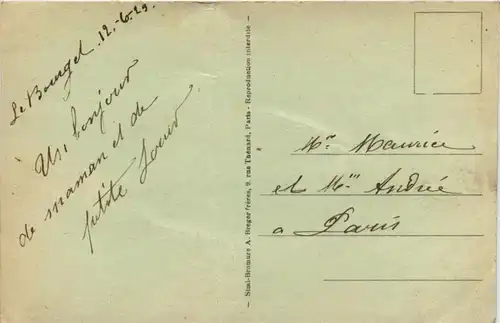 Le Bourget 12-6-29
Un bonjour
de maman et de
petite Soeur
— Simi-Bromure A. Breger frères, 9, rue Thénard, Paris - Reproduction interdite —
Mr Maurice
et Mme André
a Paris